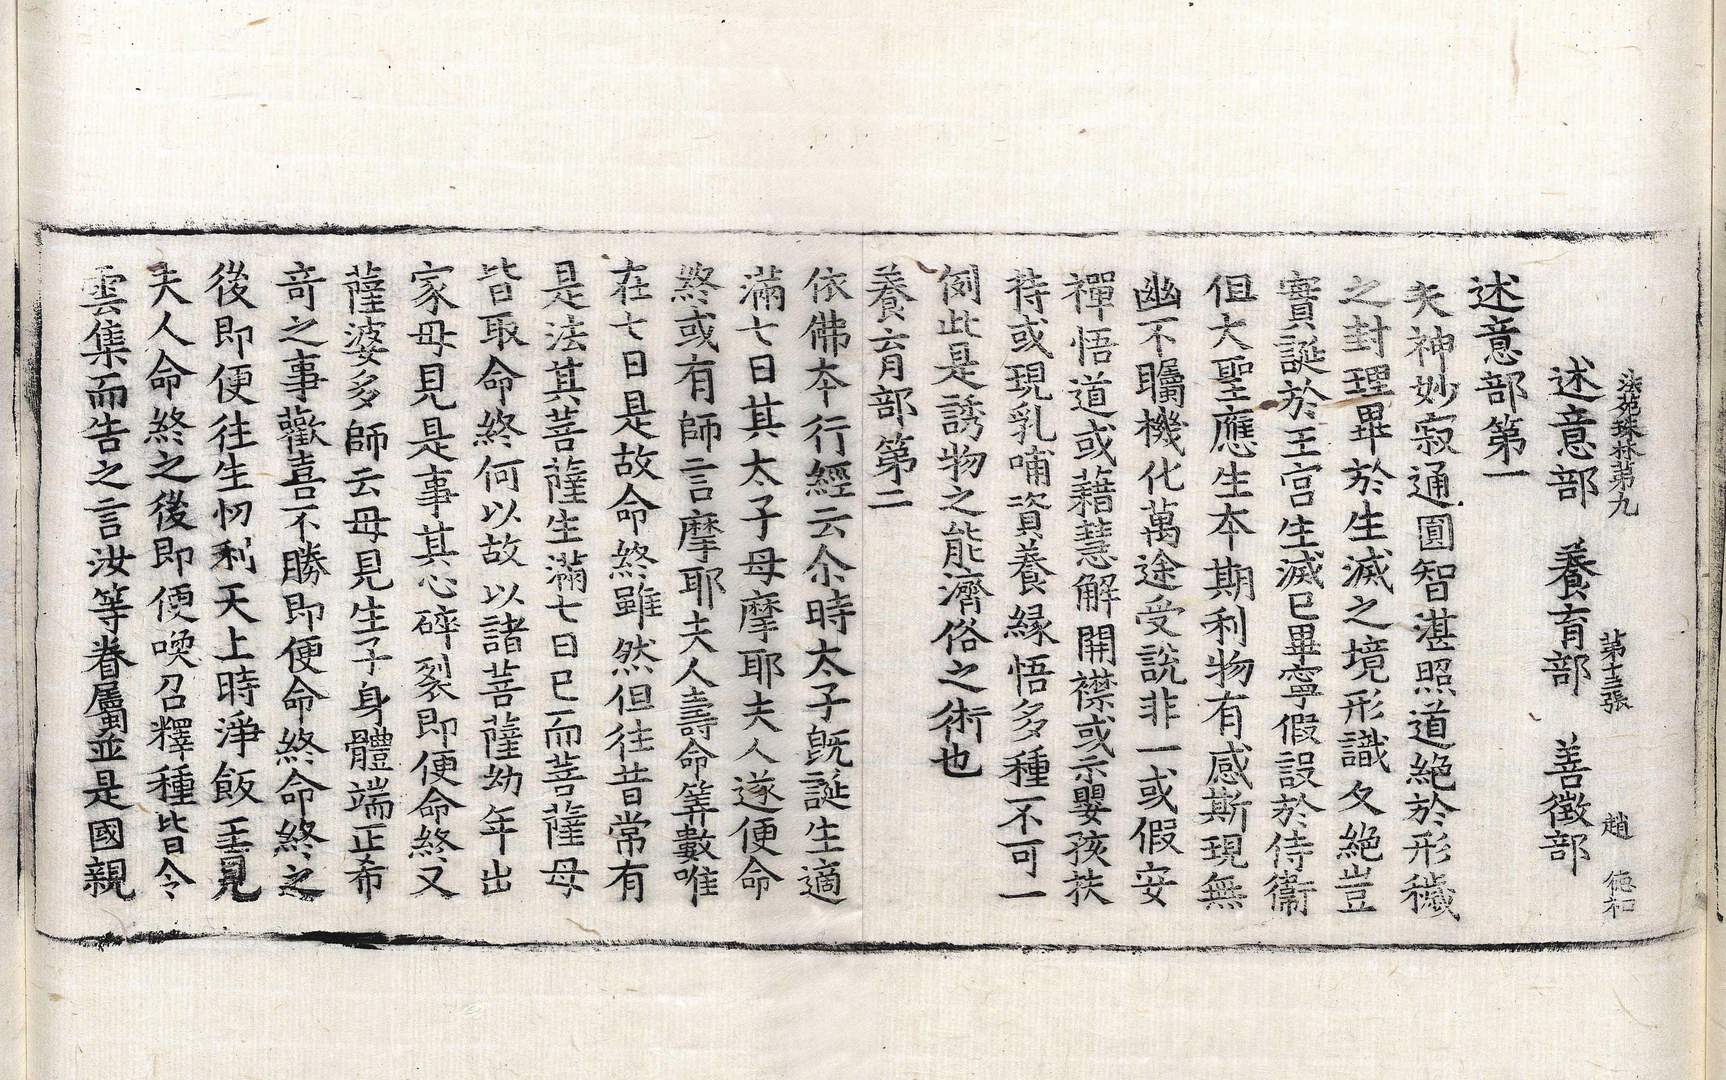 法苑珠林第九　第十三張　趙　德和
述意部　養育部　善徵部
述意部第一
夫神妙寂通圓智湛照道絶於形穢
之封理畢於生滅之境形識久絶豈
實誕於王宮生滅已畢寧假設於侍衛
但大聖應生本期利物有感斯現無
幽不矚機化萬途受說非一或假安
禪悟道或藉慧解開襟或示嬰孩扶
持或現乳哺資養緣悟多種不可一
例此是誘物之能濟俗之術也
養育部第二
依佛本行經云尒時太子旣誕生適
滿七日其太子母摩耶夫人遂便命
終或有師言摩耶夫人壽命筭數唯
在七日是故命終雖然但往昔常有
是法其菩薩生滿七日已而菩薩母
皆取命終何以故以諸菩薩幼年出
家母見是事其心碎裂即便命終又
薩婆多師云母見生子身體端正希
竒之事歡喜不勝即便命終命終之
後即便往生忉利天上時淨飯王見
夫人命終之後即便喚召釋種皆令
雲集而告之言汝等眷屬並是國親